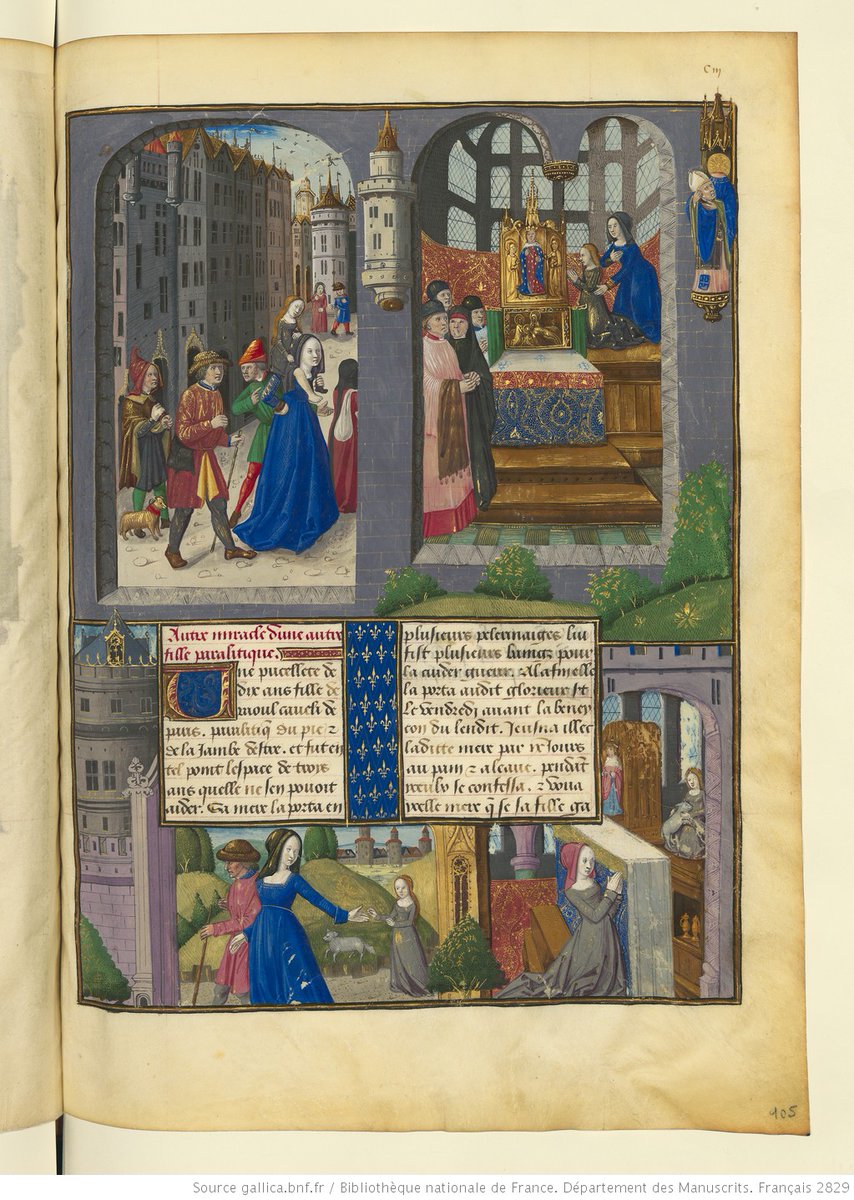 Ciii
Autre miracle dune autre
fille paralitique.
Une pucellete de
dix ans fille de
raoul cauch de
paris. paralitiq̄ du pie ⁊
de la Jambe destre. et fut en
tel point lespace de troys
ans quelle ne sen pouoit
aider. Sa mere la porta en
plusieurs pelerinaiges luy
fist plusieurs baingz pour
la cuider guerir. ⁊ A la fin elle
la porta audit glorieux st
Le vendredi auant la beney
con du lendit. Jeusna illec
ladicte mere par ix Jours
au pain ⁊ a leaue. pendāt
se confessa. ⁊ voua
mere q̄ se sa fille
105
Source gallica.bnf.fr / Bibliothèque nationale de France. Département des Manuscrits. Français 2829